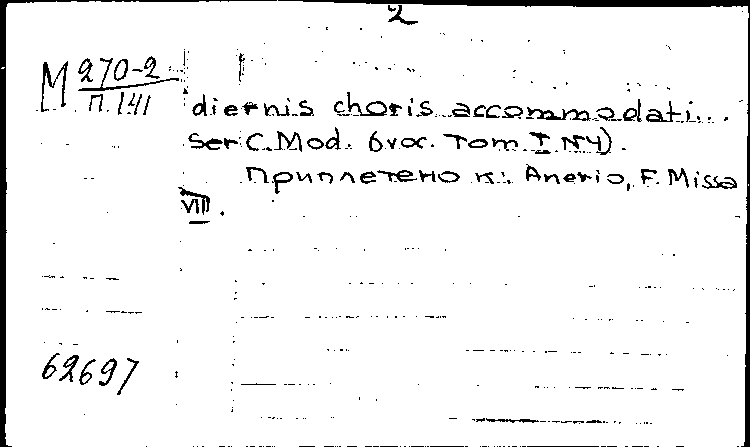 2
М 270-2
П.141
diernis choris accommodati...
Ser C. Mod. 6voc. Tom I N4).
Приплетено к: Anerio, F. Missa
VIII.
62697